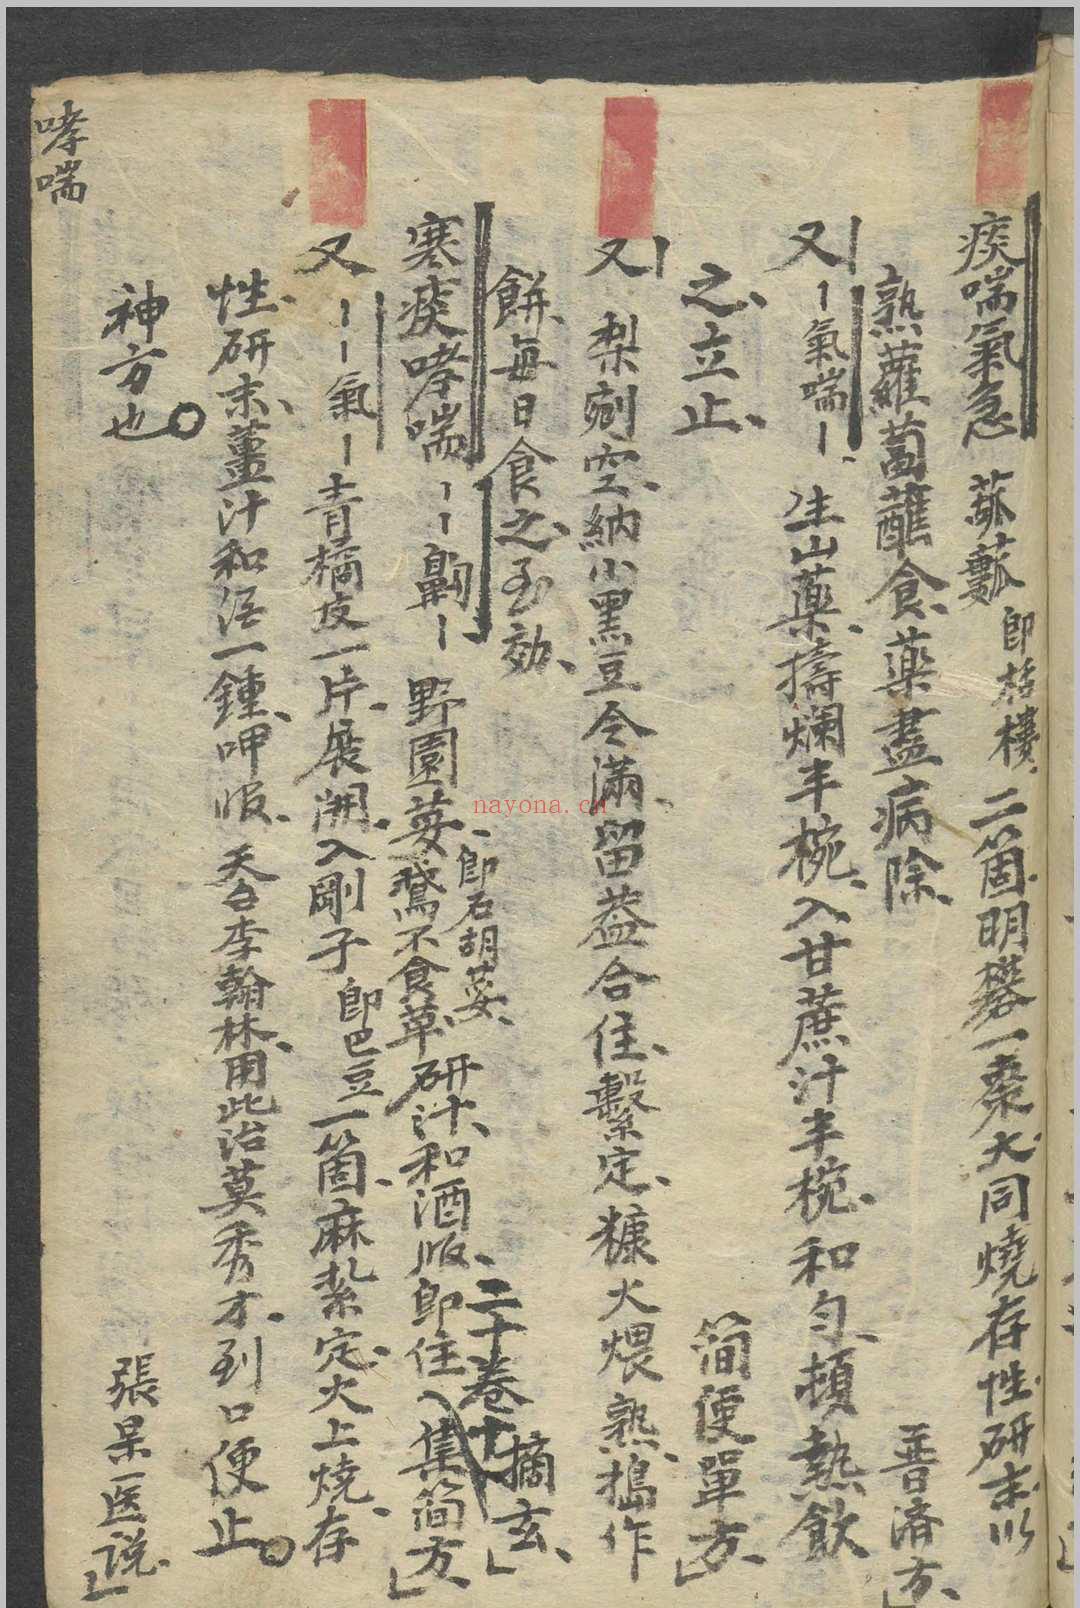 痰喘氣急 苽蔞 即栝樓 二箇明礬一棗大同燒存性研末以
熟蘿蔔蘸食藥盡病除 普濟方
又 氣喘 生山藥擣爛半椀入甘蔗汁半椀和勻頓熱飲
之立止 简便單方
又 梨剜空納小黑豆令滿留蓋合住繫定糠火煨熟搗作
餅每日食之至効 摘玄
二十卷十
寒痰哮喘 齁 野園荽 即石胡荽 鵝不食草研汁和酒服即住 集简方
又 氣 青橘皮一片展開入剛子 即巴豆 一箇麻紮定火上燒存
性研末薑汁和酒一鍾呷服 天台李翰林用此治莫秀才到口便止
神方也 張杲医说
哮喘
nayona.cn